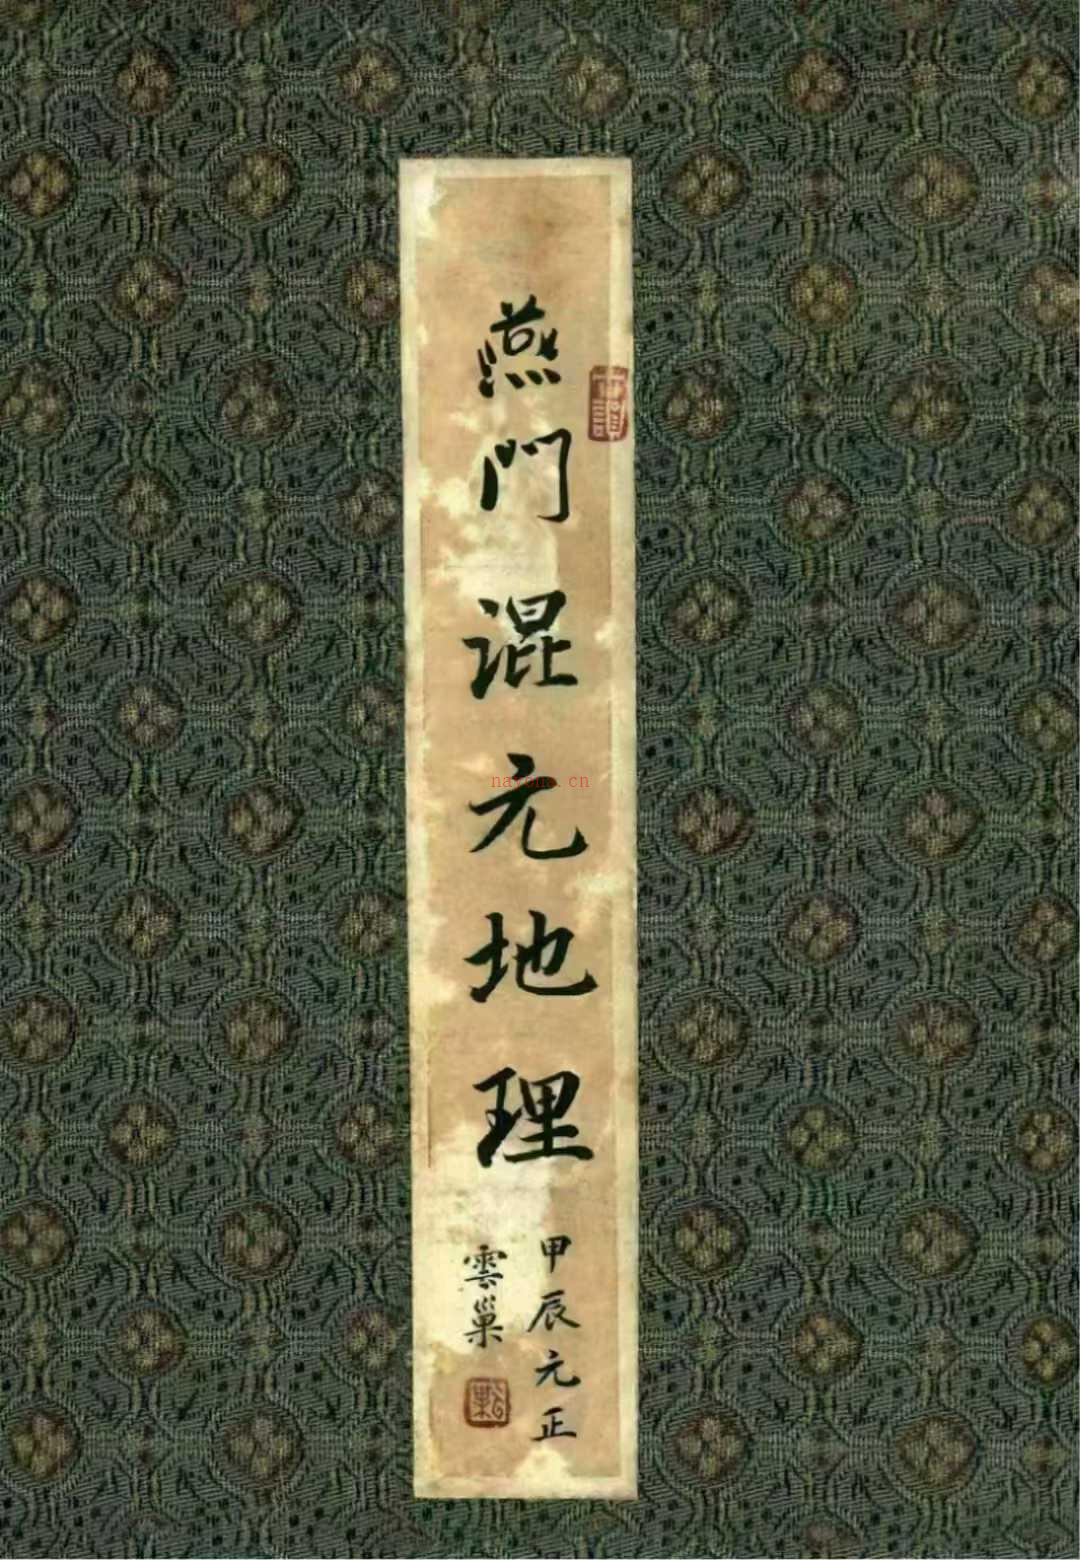 燕門混元地理
甲辰元正
雲巢
nayona.cn